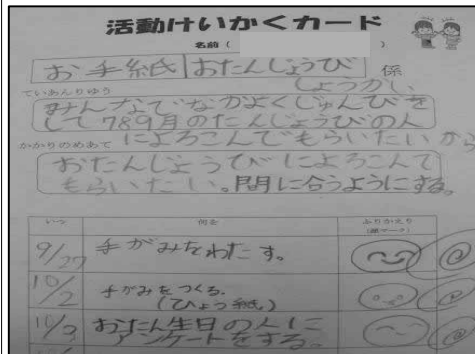 活動けいかくカード
名前（　　　）
お手紙 おたんじょうび 係
しょうかい
ていあんりゆう
みんなでなかよくじゅんびを
して789月のたんじょうびの人
によろこんでもらいたいから
かかりのめあて
おたんじょうびによろこんで
もらいたい。間に合うようにする。
いつ 何を ふりかえり
（顔マーク）
9/27 手がみをわたす。
10/2 手がみをつくる。
（ひょう紙）
10/3 おたん生日の人に
アンケートをする。